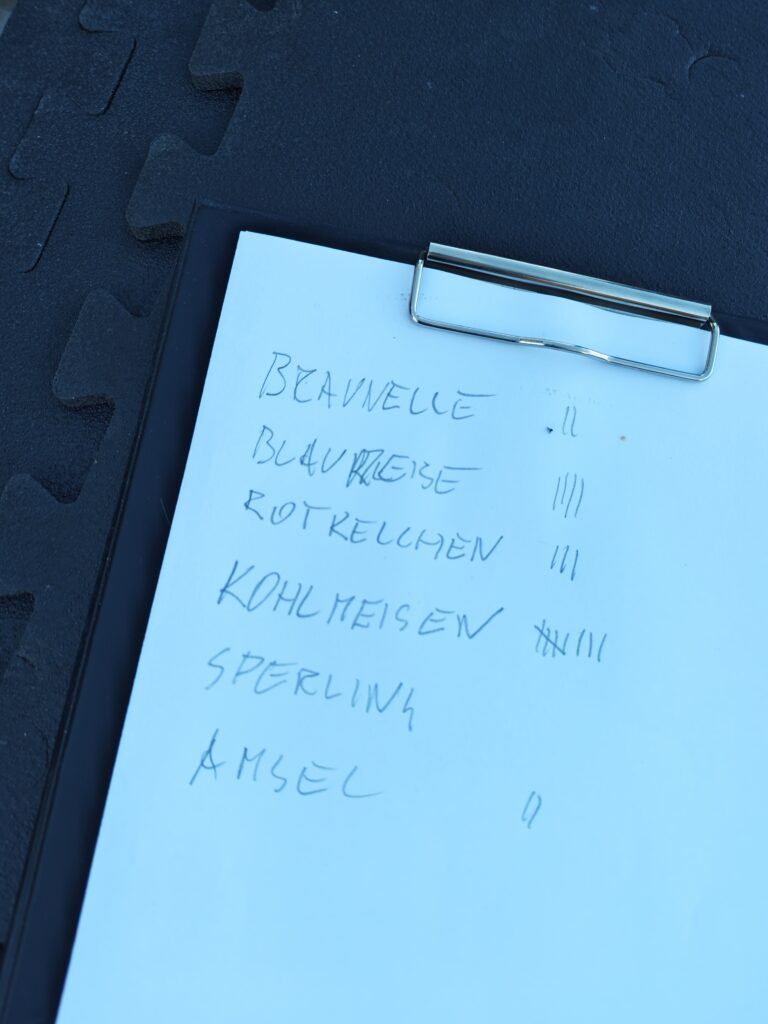 BRAUNELLE ||
BLAUMEISE ||||
ROTKELCHEN |||
KOHLMEISEN 卌 |||
SPERLING
AMSEL ||